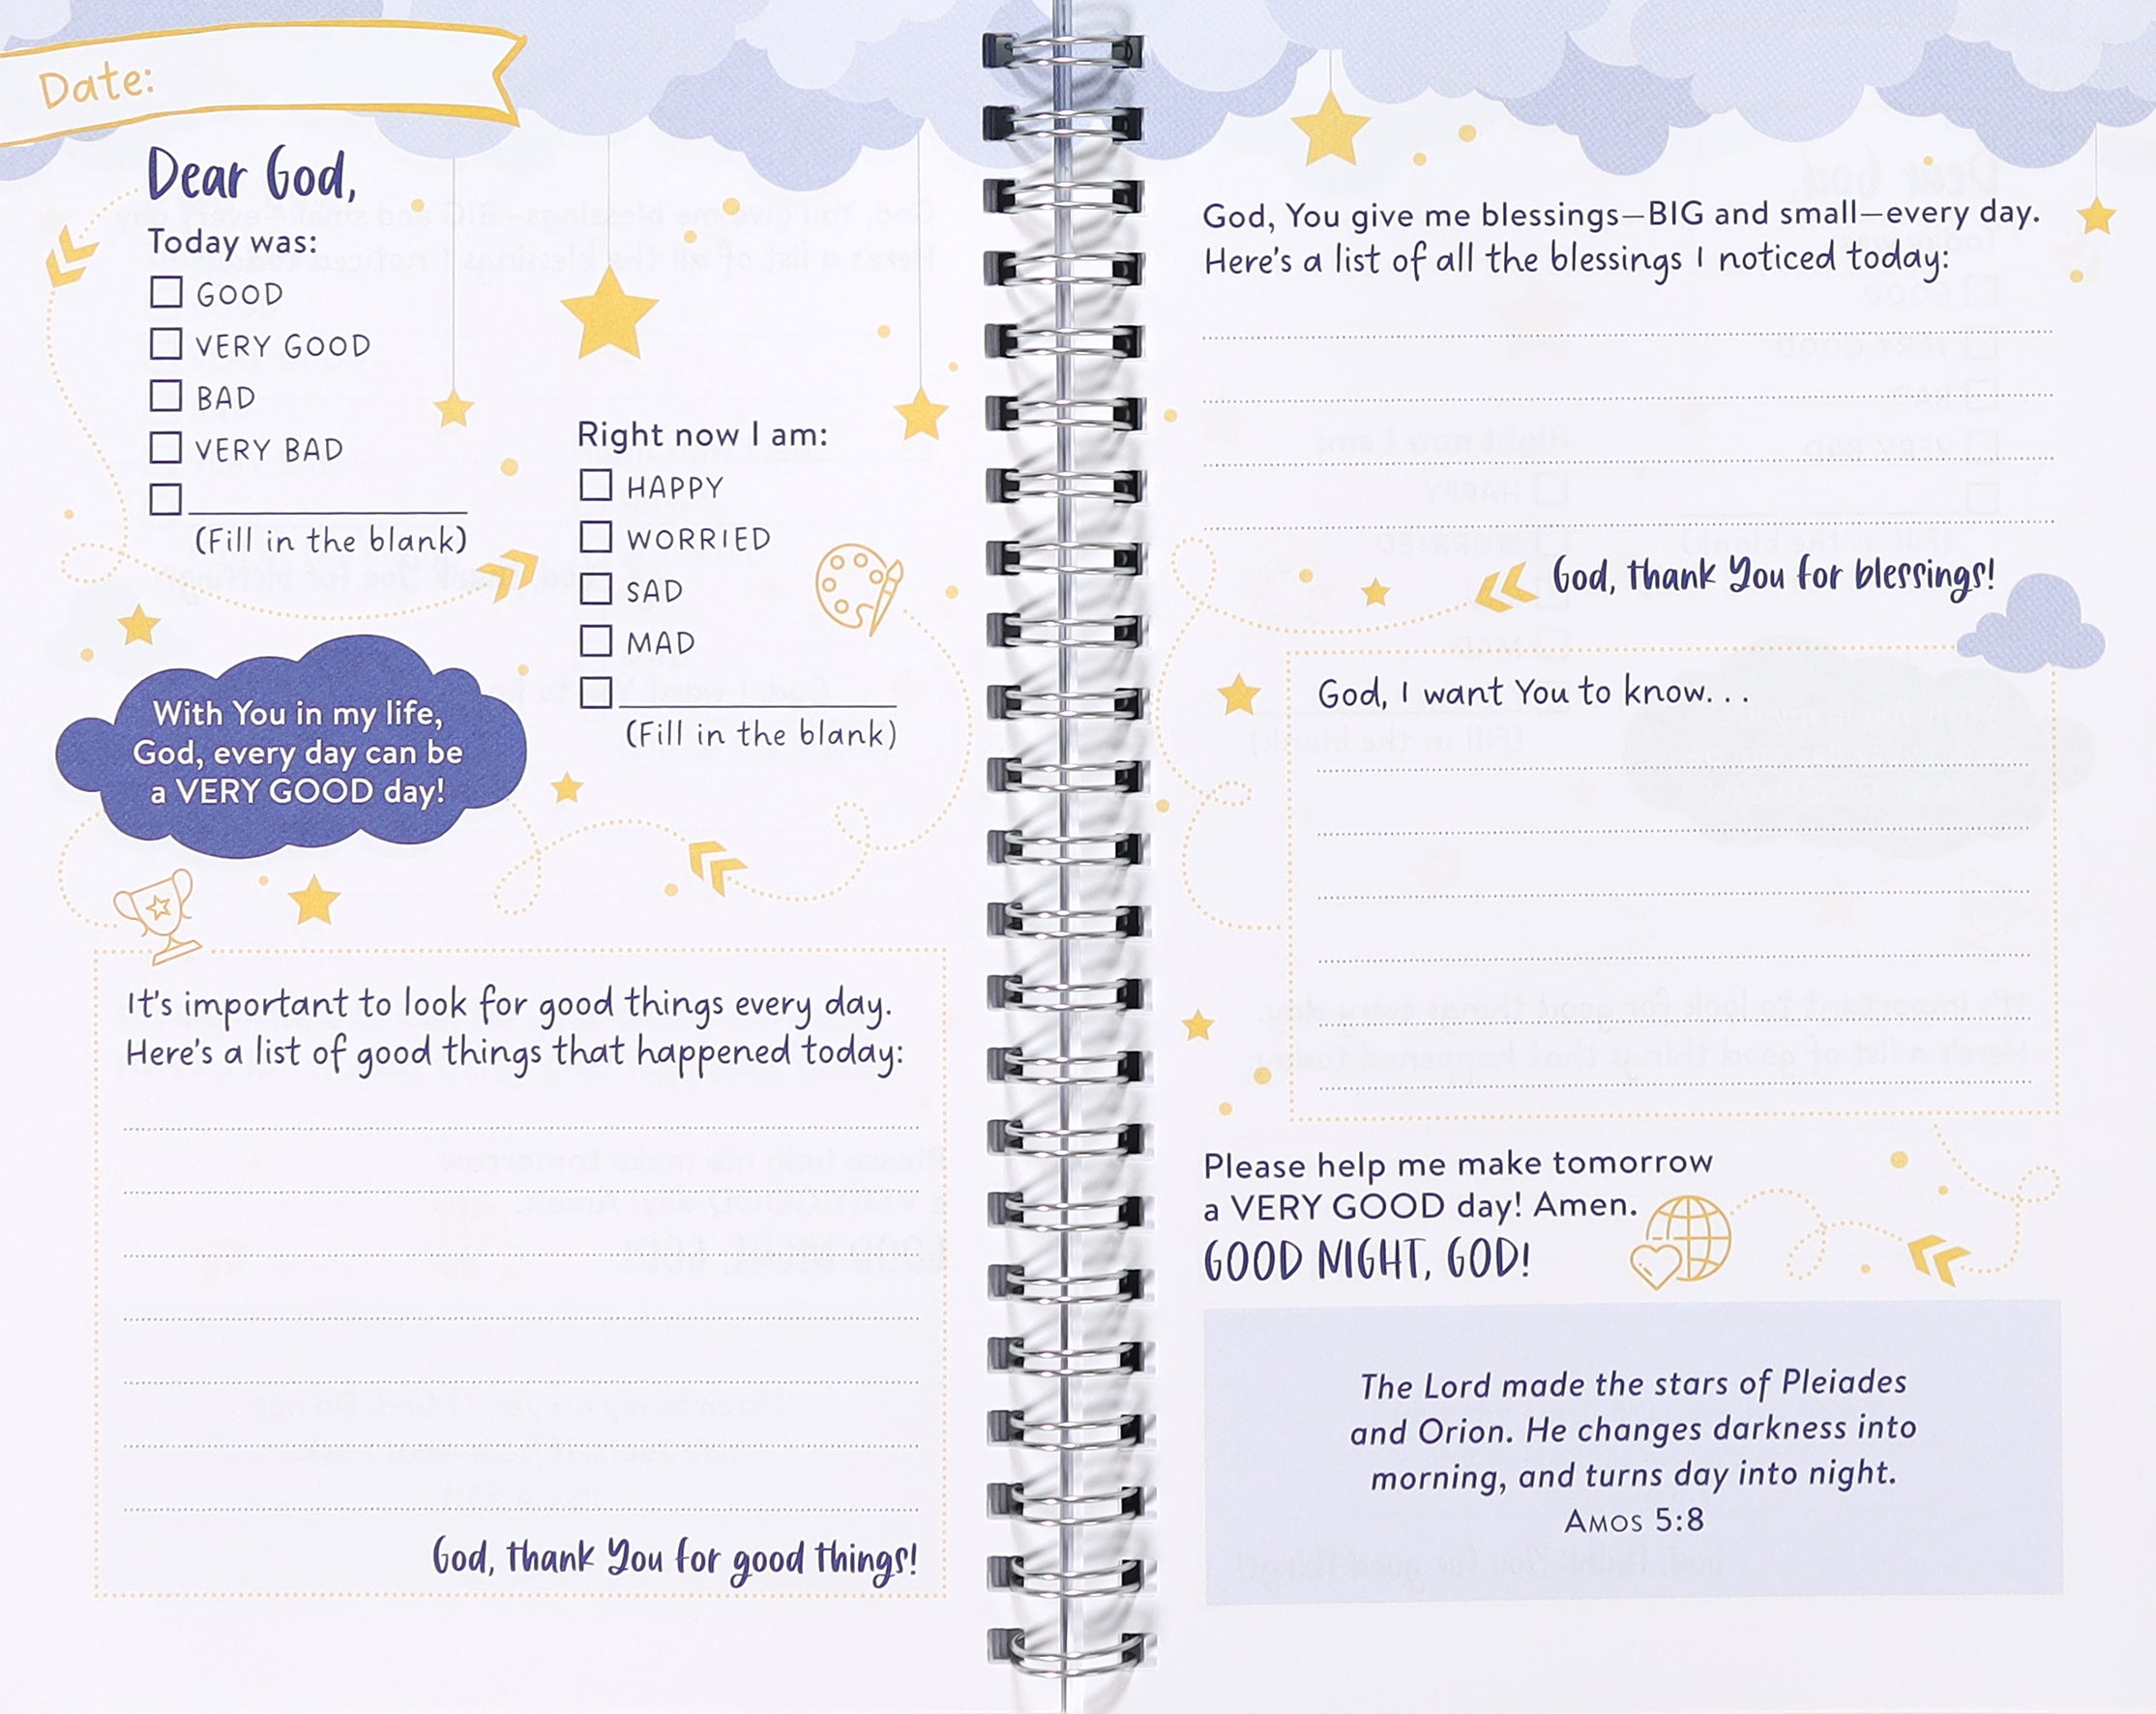 Date:
Dear God,
Today was:
GOOD
VERY GOOD
BAD
VERY BAD
(Fill in the blank)
Right now I am:
HAPPY
WORRIED
SAD
MAD
(Fill in the blank)
With You in my life,
God, every day can be
a VERY GOOD day!
It's important to look for good things every day.
Here's a list of good things that happened today:
God, thank You for good things!
God, You give me blessings—BIG and small—every day.
Here's a list of all the blessings I noticed today:
God, thank You for blessings!
God, I want You to know...
Please help me make tomorrow
a VERY GOOD day! Amen.
GOOD NIGHT, GOD!
The Lord made the stars of Pleiades
and Orion. He changes darkness into
morning, and turns day into night.
Amos 5:8